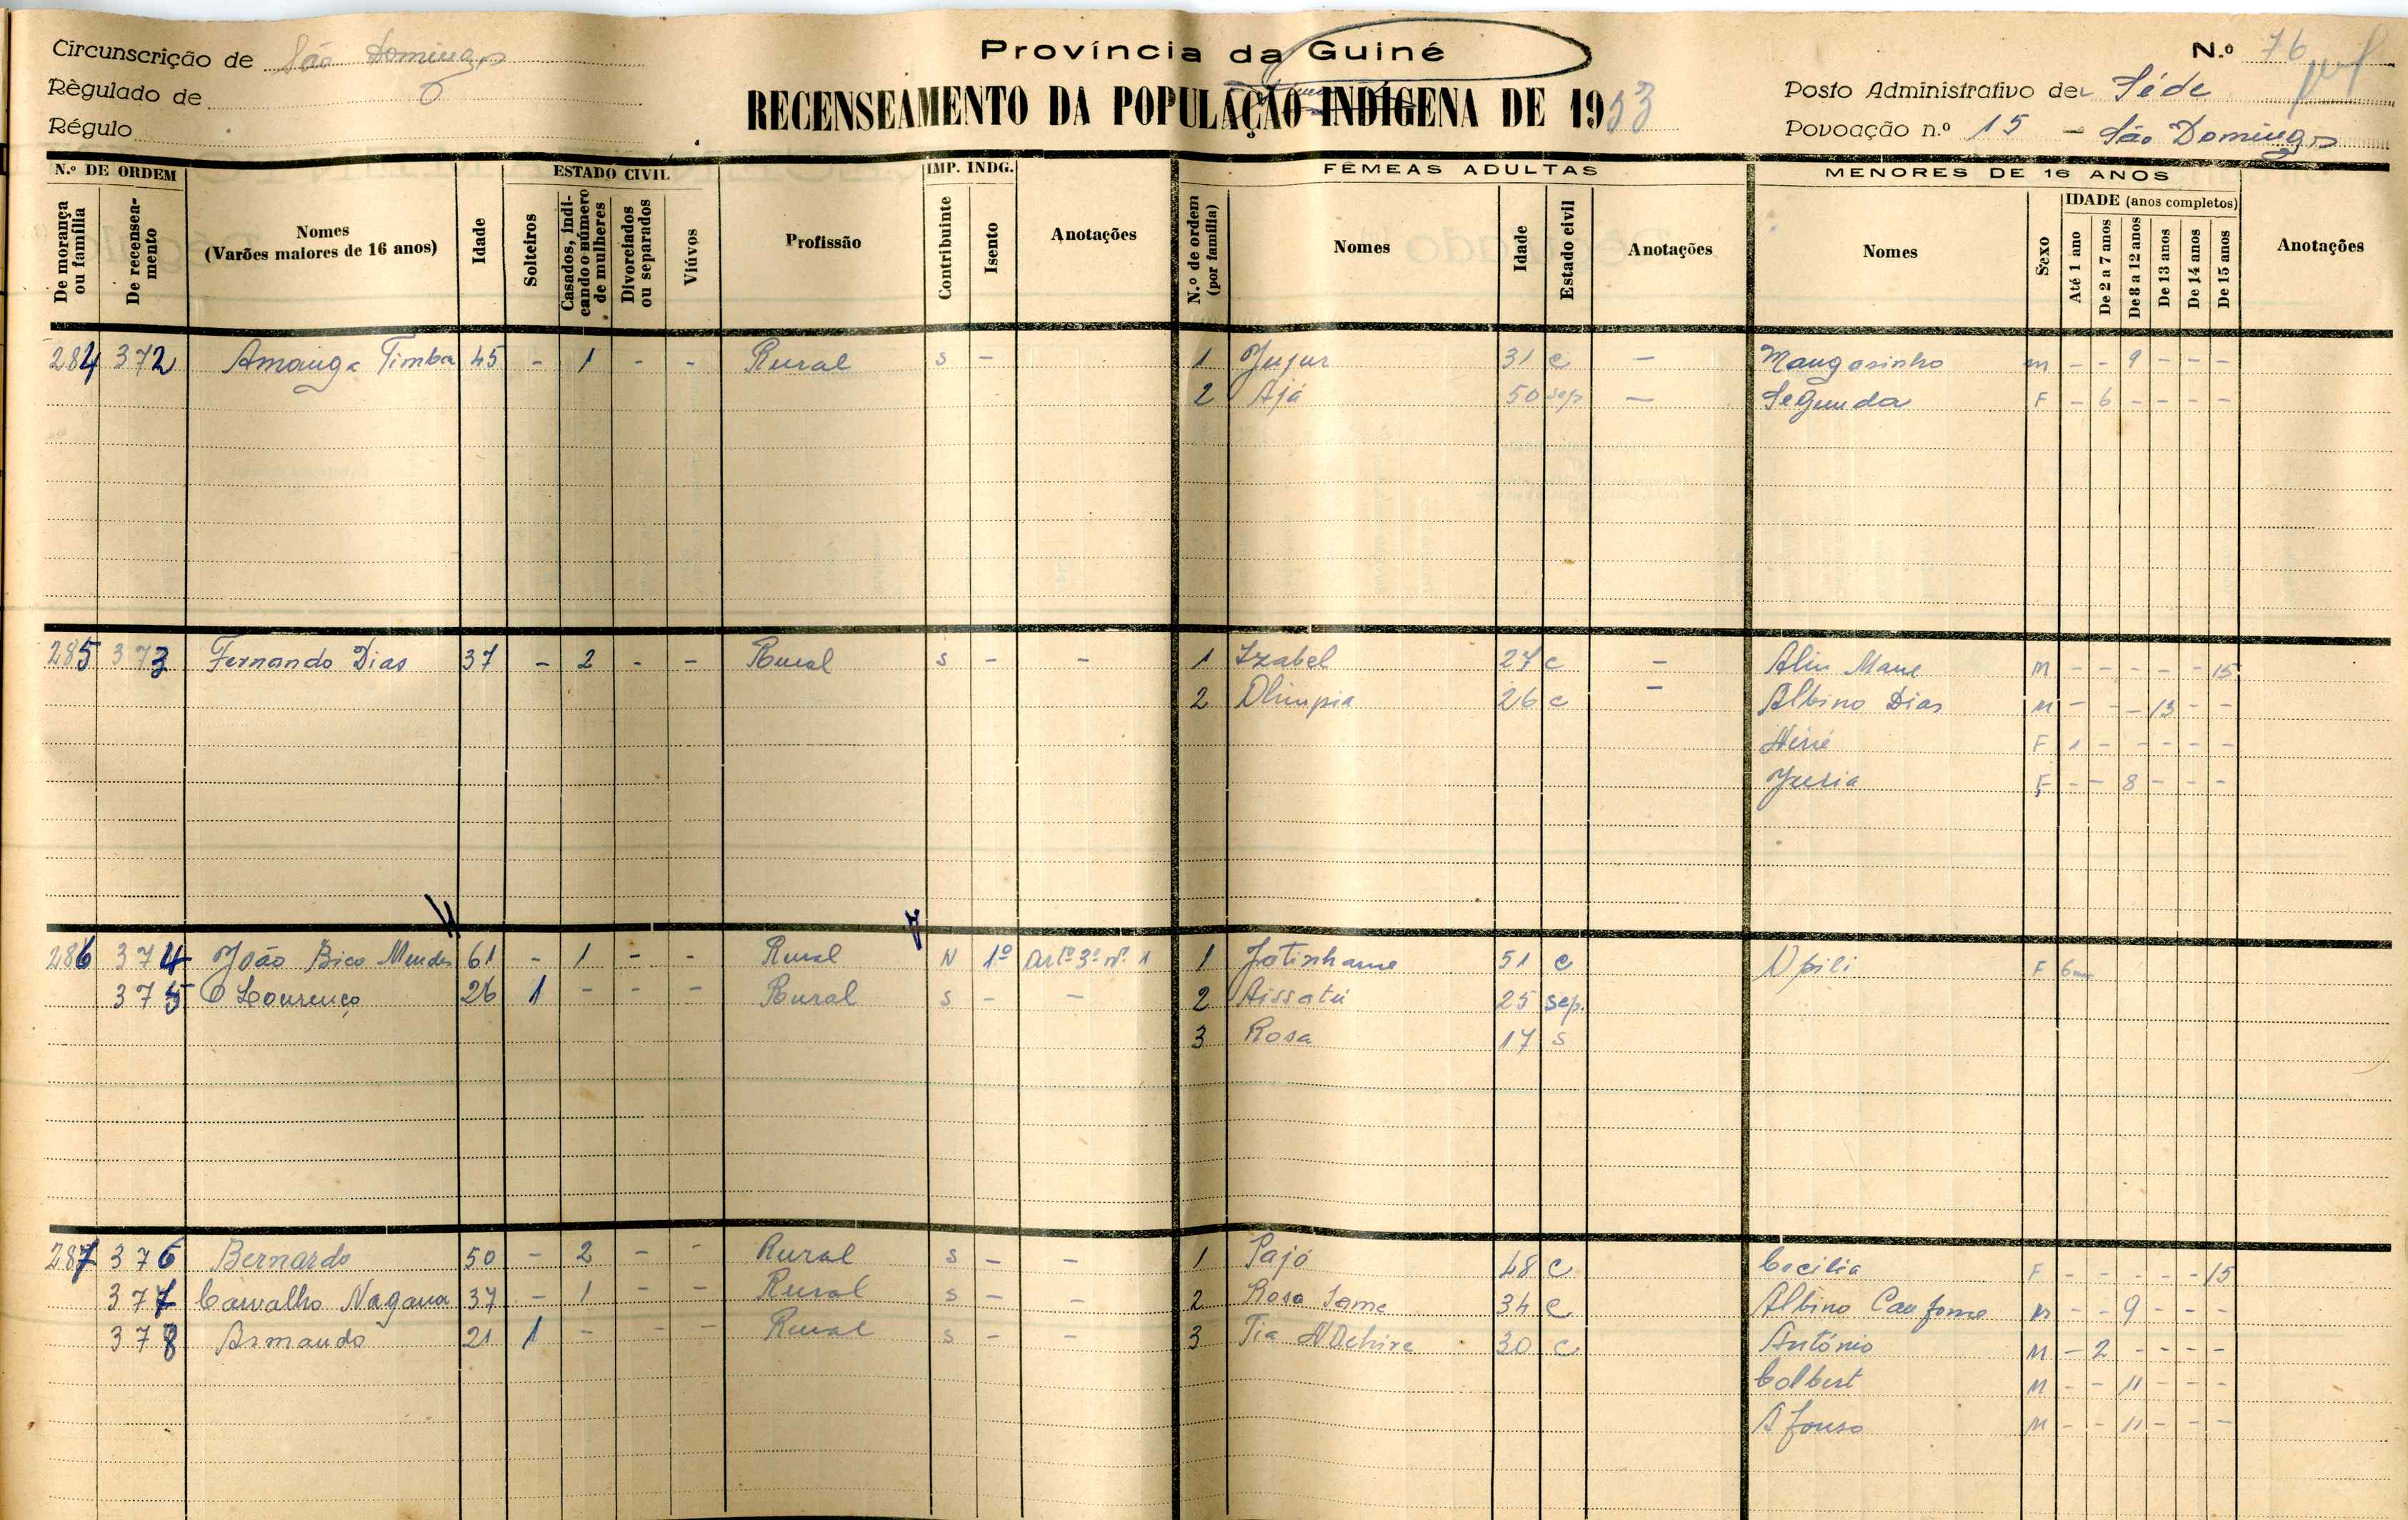 Circunscrição de São Domingos
Província da Guiné
N.º 76
Règulado de
RECENSEAMENTO DA POPULAÇÃO INDÍGENA DE 1953
Posto Administrativo de Séde
Régulo
Povoação n.º 15 - São Domingos
N.º DE ORDEM ESTADO CIVIL IMP. INDG. FÊMEAS ADULTAS MENORES DE 16 ANOS
De morança ou família De recenseamento Nomes (Varões maiores de 16 anos) Idade Solteiros Casados, indicando o número de mulheres Divorciados ou separados Viúvos Profissão Contribuinte Isento Anotações N.º de ordem (por família) Nomes Idade Estado civil Anotações Nomes Sexo IDADE (anos completos) Até 1 ano De 2 a 7 anos De 8 a 12 anos De 13 anos De 14 anos De 15 anos Anotações
284 372 Timba 45 - 1 - - Rural s - 1 Jujur 31 c - Mangasinho m - - 9 - - -
2 Ajá 50 sep - Segunda F - 6 - - - -
285 373 Fernando Dias 37 - 2 - - Rural s - - 1 Izabel 27 c - Aliu Mane M - - - - - 15
2 Olimpia 26 c - Albino Dias M - - - 13 - -
F 1 - - - - -
F - - 8 - - -
286 374 João Bico Mendes 61 - 1 - - Rural N 1º Artº 3º nº 1 1 Jotinhame 51 c N'pili F 6
375 Lourenço 26 1 - - - Rural s - - 2 Aissatú 25 sep.
3 Rosa 17 s
287 376 Bernardo 50 - 2 - - Rural s - - 1 Pajó 48 c Cecilia F - - - - - 15
377 Carvalho Nagana 37 - 1 - - Rural s - - 2 Rosa Same 34 c Albino M - - 9 - - -
378 Armando 21 1 - - - Rural s - - 3 Tia 30 c António M - 2 - - - -
Colbert M - - 11 - - -
Afonso M - - 11 - - -